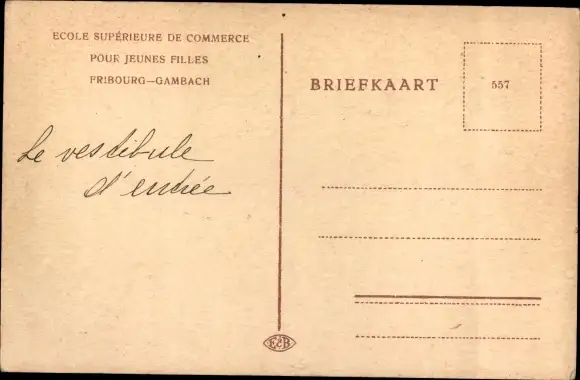 ECOLE SUPÉRIEURE DE COMMERCE
POUR JEUNES FILLES
FRIBOURG—GAMBACH
Le vestibule
d'entrée
BRIEFKAART
557
E&B